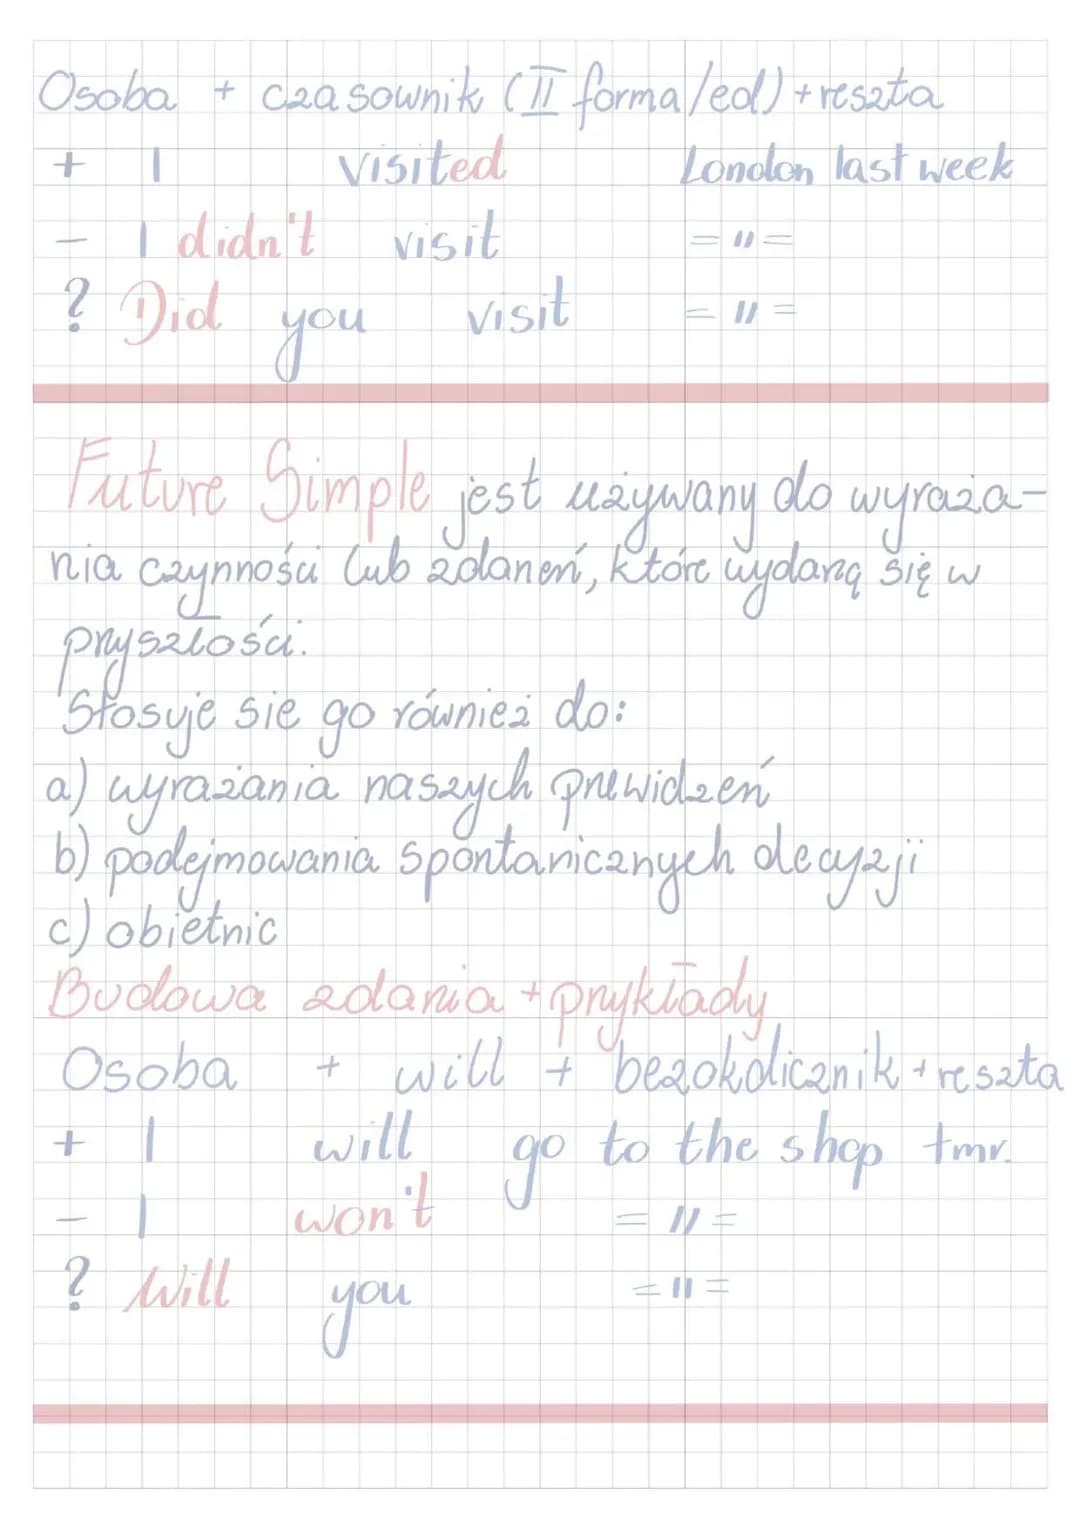 Osoba + czasownik (II forma/ed) + reszta
+ I visited London last week
- I didn't visit =11=
? Did you visit =11=
Future Simple jest używany do wyraża-
nia czynności lub zdaneń, które wydarzą się w
przyszłości.
Stosuje sie go również do:
a) wyrażania naszych przewidzeń
b) podejmowania spontanicznych decyzji
c) obietnic
Budowa zdania + przykłady
Osoba + will + bezokolicznik + reszta
+ I will go to the shop tmr.
- I won't =11=
? Will you =11=